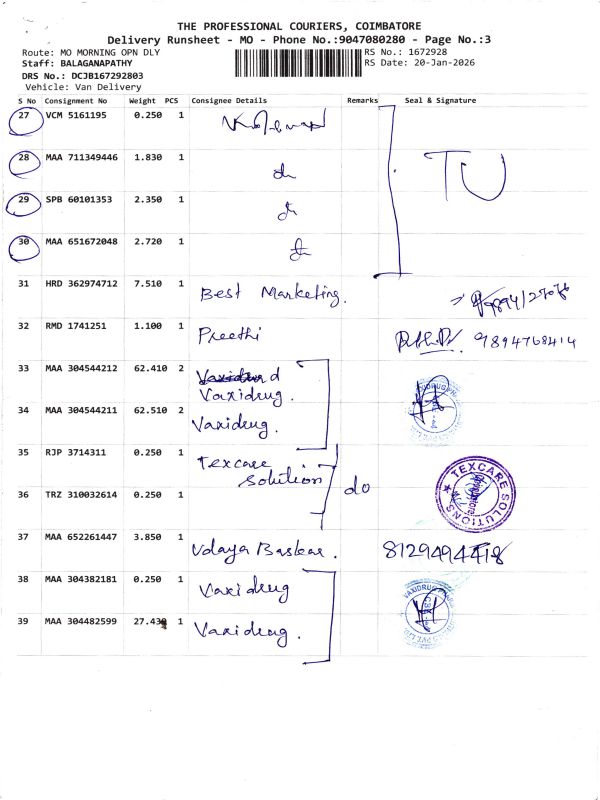 THE PROFESSIONAL COURIERS, COIMBATORE
Delivery Runsheet - MO - Phone No.:9047080280 - Page No.:3
Route: MO MORNING OPN DLY
RS No.: 1672928
Staff: BALAGANAPATHY
RS Date: 20-Jan-2026
DRS No.: DCJB167292803
Vehicle: Van Delivery
S No Consignment No Weight PCS Consignee Details Remarks Seal & Signature
27 VCM 5161195 0.250 1
28 MAA 711349446 1.830 1
29 SPB 60101353 2.350 1
30 MAA 651672048 2.720 1
TU
31 HRD 362974712 7.510 1 Best Marketing.
32 RMD 1741251 1.100 1 Preethi 9894768414
33 MAA 304544212 62.410 2
Vaxidrug.
34 MAA 304544211 62.510 2 Vaxidrug.
35 RJP 3714311 0.250 1 Texcare
Solution do
36 TRZ 310032614 0.250 1
TEXCARE SOLUTIONS
37 MAA 652261447 3.850 1 Udaya Baskar. 8129494418
38 MAA 304382181 0.250 1 Vaxidrug
39 MAA 304482599 27.430 1 Vaxidrug.